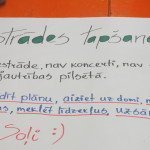 strādes tapšana
estrāde, nav koncerti, nav
jautības pilsētā.
dīt plānu, aiziet uz domi,
us, meklēt līdzekļus, uzsā
Soļi :)